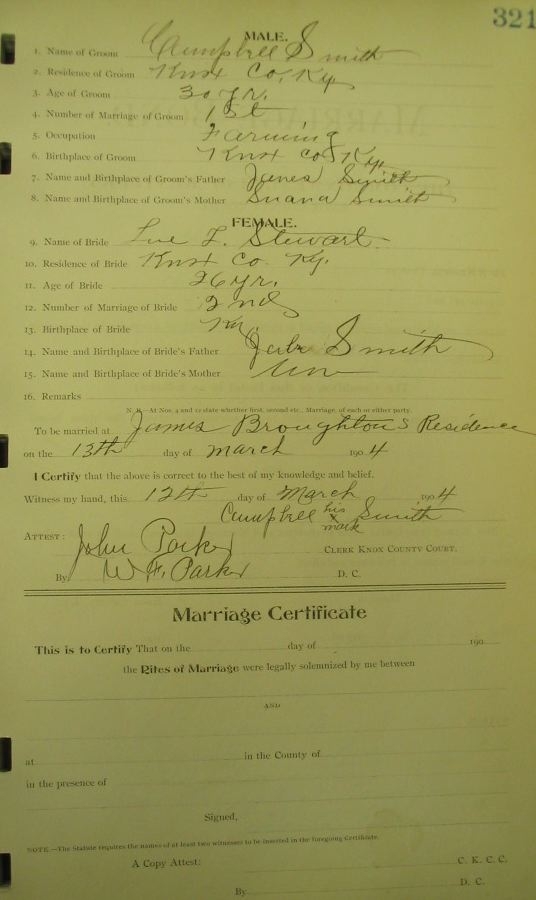 321
MALE.
1. Name of Groom Campbell Smith
2. Residence of Groom Knox Co. Ky
3. Age of Groom 30 yr.
4. Number of Marriage of Groom 1st
5. Occupation Farming
6. Birthplace of Groom Knox Co. Ky
7. Name and Birthplace of Groom's Father James Smith
8. Name and Birthplace of Groom's Mother Smith
FEMALE.
9. Name of Bride Stewart
10. Residence of Bride Knox Co. Ky.
11. Age of Bride 26 yr.
12. Number of Marriage of Bride 2nd
13. Birthplace of Bride Ky.
14. Name and Birthplace of Bride's Father Smith
15. Name and Birthplace of Bride's Mother
16. Remarks
N. B.—At Nos. 4 and 12 state whether first, second etc., Marriage, of each or either party.
To be married at James Broughton's Residence
on the 13th day of March 1904
I Certify that the above is correct to the best of my knowledge and belief.
Witness my hand, this 12th day of March 1904
Campbell his x mark Smith
ATTEST: John Parker CLERK KNOX COUNTY COURT.
By W. F. Parker D. C.
Marriage Certificate
This is to Certify That on the day of 190
the Rites of Marriage were legally solemnized by me between
AND
at in the County of
in the presence of
Signed,
NOTE.—The Statute requires the names of at least two witnesses to be inserted in the foregoing Certificate.
A Copy Attest: C. K. C. C.
By D. C.